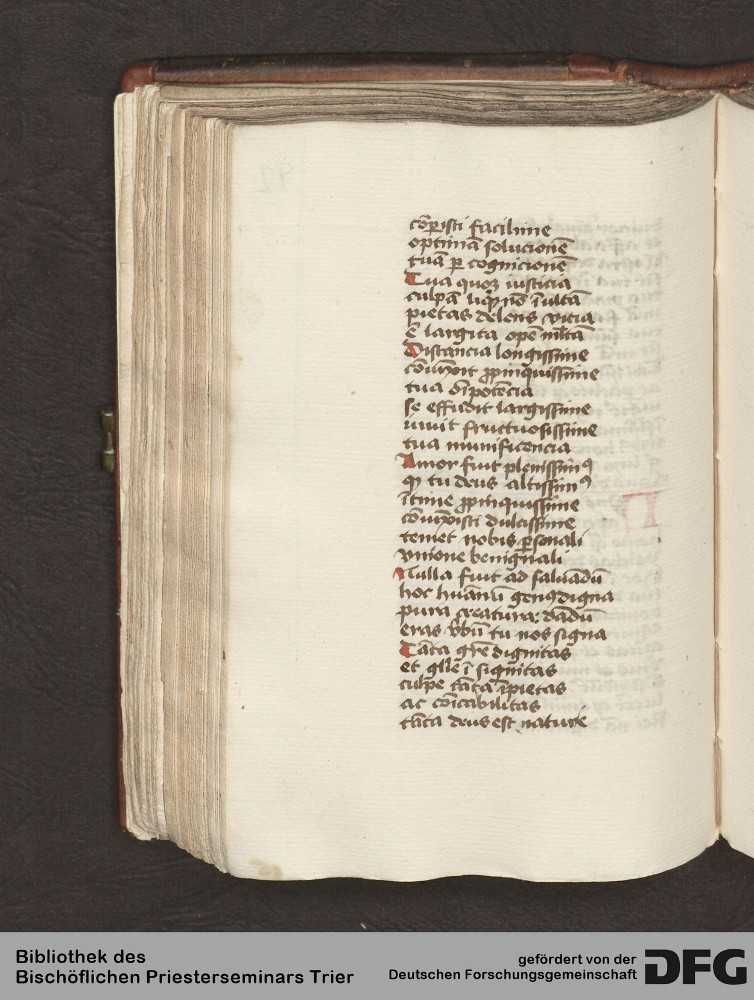 cōpisti facilime
optimā solucionē
tuā p cognicionē
Tua quoqꝫ iusticia
culpā liqͥt nō īultā
pietas delens vicia
ē largita opē mltā
Distancia longissime
cōiūxit ꝓpinquissime
tua oīpotēcia
se effudit largissime
iuuit fructuosissime
tua munificencia
Amor fuit plenissimꝰ
qꝫ tu deus altissimꝰ
ītime ꝓpinquissime
cōiūxisti dulcissime
temet nobis psonali
vnione benignali
Nulla fuit ad saluādū
hoc huānū genꝰ digna
pura creatura: dādū
eras v̄bū tu nos signa
Tāta dignitas
et glīe ī signitas
culpe tāta īpietas
ac cōicabilitas
tāta deus est nature
Bibliothek des
Bischöflichen Priesterseminars Trier
gefördert von der
Deutschen Forschungsgemeinschaft
DFG